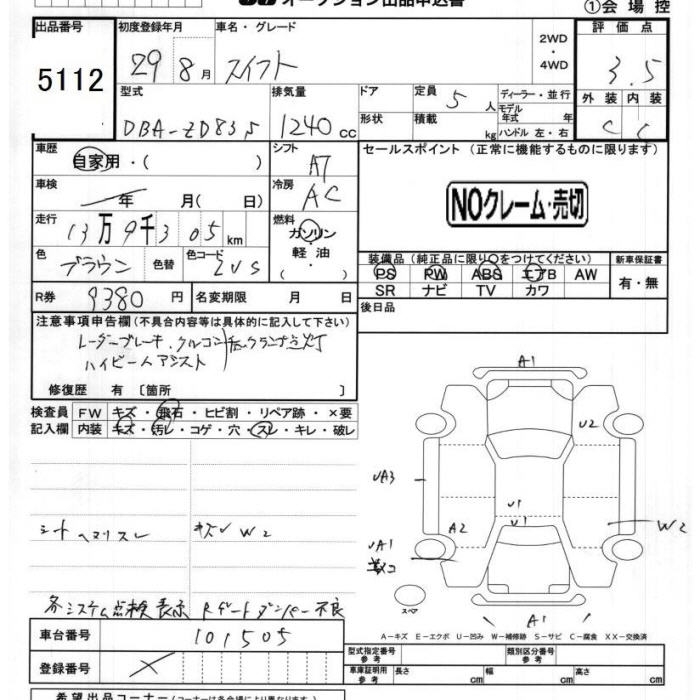 オークション出品申込書
①会場控
出品番号
5112
初度登録年月
29 8月
車名・グレード
スイフト
2WD
・
4WD
評価点
3.5
外装 内装
C C
型式
DBA-ZD83S
排気量
1240cc
ドア
形状
定員 5人
積載 kg
ディーラー・並行
モデル
年式 年
ハンドル 左・右
車歴
自家用・( )
シフト
AT
セールスポイント (正常に機能するものに限ります)
NOクレーム・売切
車検
年 月( 日)
冷房
AC
走行
13万9千305km
燃料
ガソリン
軽油
( ・ )
色
ブラウン
色替
色コード
ZVS
装備品(純正品に限り○をつけてください)
PS PW ABS エアB AW
SR ナビ TV カワ
新車保証書
有・無
R券
9380円
名変期限 月 日
後日品
注意事項申告欄(不具合内容等は具体的に記入して下さい)
レーダーブレーキ、クルコン
ハイビームアシスト
修復歴 有〔箇所 〕
検査員
記入欄
FW キズ・飛石・ヒビ割・リペア跡・×要
内装 キズ・汚レ・コゲ・穴・スレ・キレ・破レ
A1
U2
UA3
U1
U1
A2
W2
UA1
スペア
A1
シートヘタリスレ
キズW2
各システム点検表示 Rゲートダンパー不良
A-キズ E-エクボ U-凹み W-補修跡 S-サビ C-腐食 XX-交換済
車台番号
101505
登録番号
型式指定番号
参考
類別区分番号
参考
車庫証明用
参考
長さ cm
幅 cm
高さ cm
希望出品コーナー(コーナーは各会場により異なります)